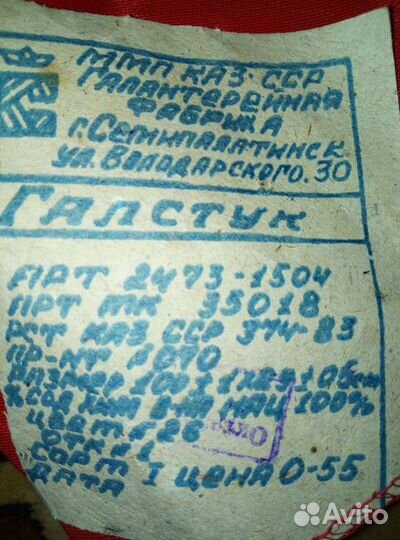 ММП КАЗ ССР
ГАЛАНТЕРЕЙНАЯ
ФАБРИКА
г. СЕМИПАЛАТИНСК
ул. ВОЛОДАРСКОГО. 30
ГАЛСТУК
АРТ 2473-1504
ПРТ ТК 35018
РСТ КАЗ ССР 374-83
ПР-НТ
РАЗМЕР 100
100%
ЦВЕТ 26
ОТК №1
СОРТ I ЦЕНА 0-55
ДАТА
Avito